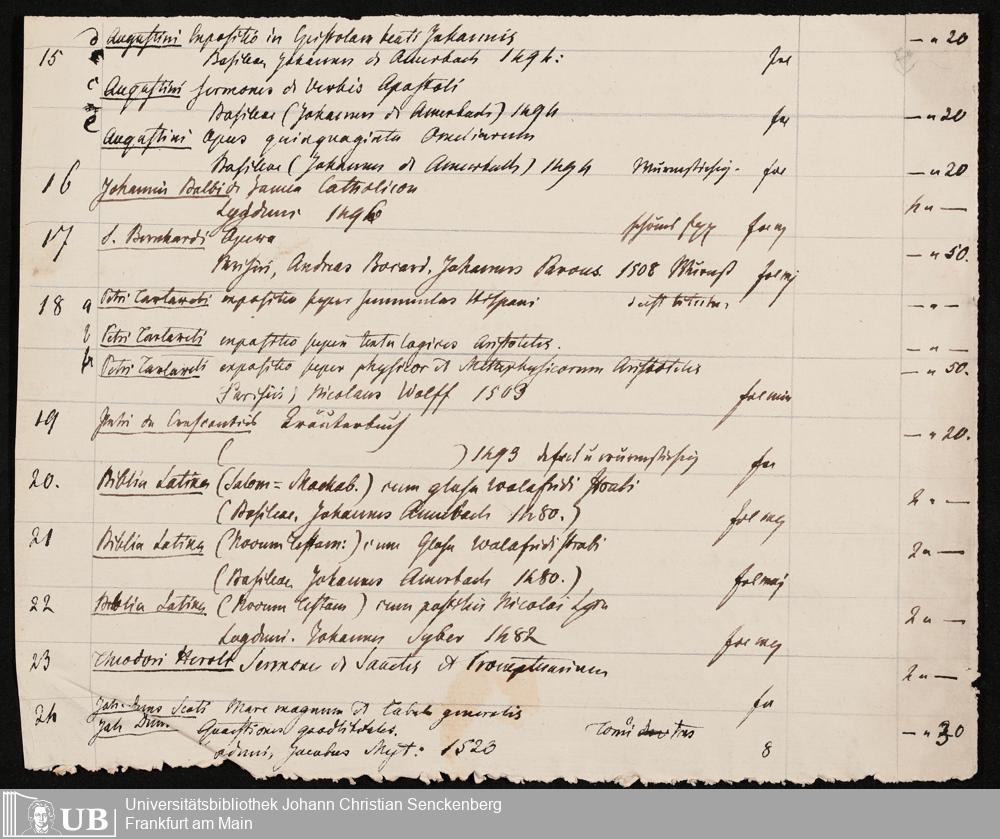 b Augustini Expositio in Epistolam beati Johannis — " 20
15 Basileae Johannes de Amerbach 1494: fol
c Augustini Sermones de Verbis Apostoli
Basileae (Johannes de Amerbach) 1494 fol — " 20
Augustini Opus quinquaginta Omeliarum
Basileae (Johannes de Amerbach) 1494 Wurmstichig. fol — " 20
16 Johannis Balbi de Janua Catholicon
Lugduni 1496 fol maj 4 " —
17 S. Bernhardi Opera
Parisiis, Andreas Bocard, Johannes Parvus 1508 fol maj — " 50.
18 a Petri Tartareti expositio super summulas Hispani — " —
b Petri Tartareti expositio super textu logices Aristotelis. — " —
Petri Tartareti expositio super physicor et Metaphysicorum Aristotelis — " 50.
(Parisiis) Nicolaus Wolff 1503 fol min
19 Petri de Crescentiis Kräuterbuch — " 20.
( ) 1493 defect u wurmstichig fol
20. Biblia Latina (Salom = Machab.) cum glosa Walafridi Strabi
(Basileae, Johannes Amerbach 1480.) fol maj 2 " —
21 Biblia Latina (Novum Testam:) cum Glosa Walafridi Strabi
(Basileae Johannes Amerbach 1480.) fol maj 2 " —
22 Biblia Latina (Novum Testam) cum postillis Nicolai Lyra
Lugduni. Johannes Syber 1482 fol maj 2 " —
23 Theodori Herolt Sermones de Sanctis et Promptuarium 2 " —
fol
24 Joh. Duns Scoti Mare magnum et tabula generalis
Joh Duns Quaestiones quodlibetales. Tomi tres — " 30
Jacobus Myt: 1520 8
UB
Universitätsbibliothek Johann Christian Senckenberg
Frankfurt am Main